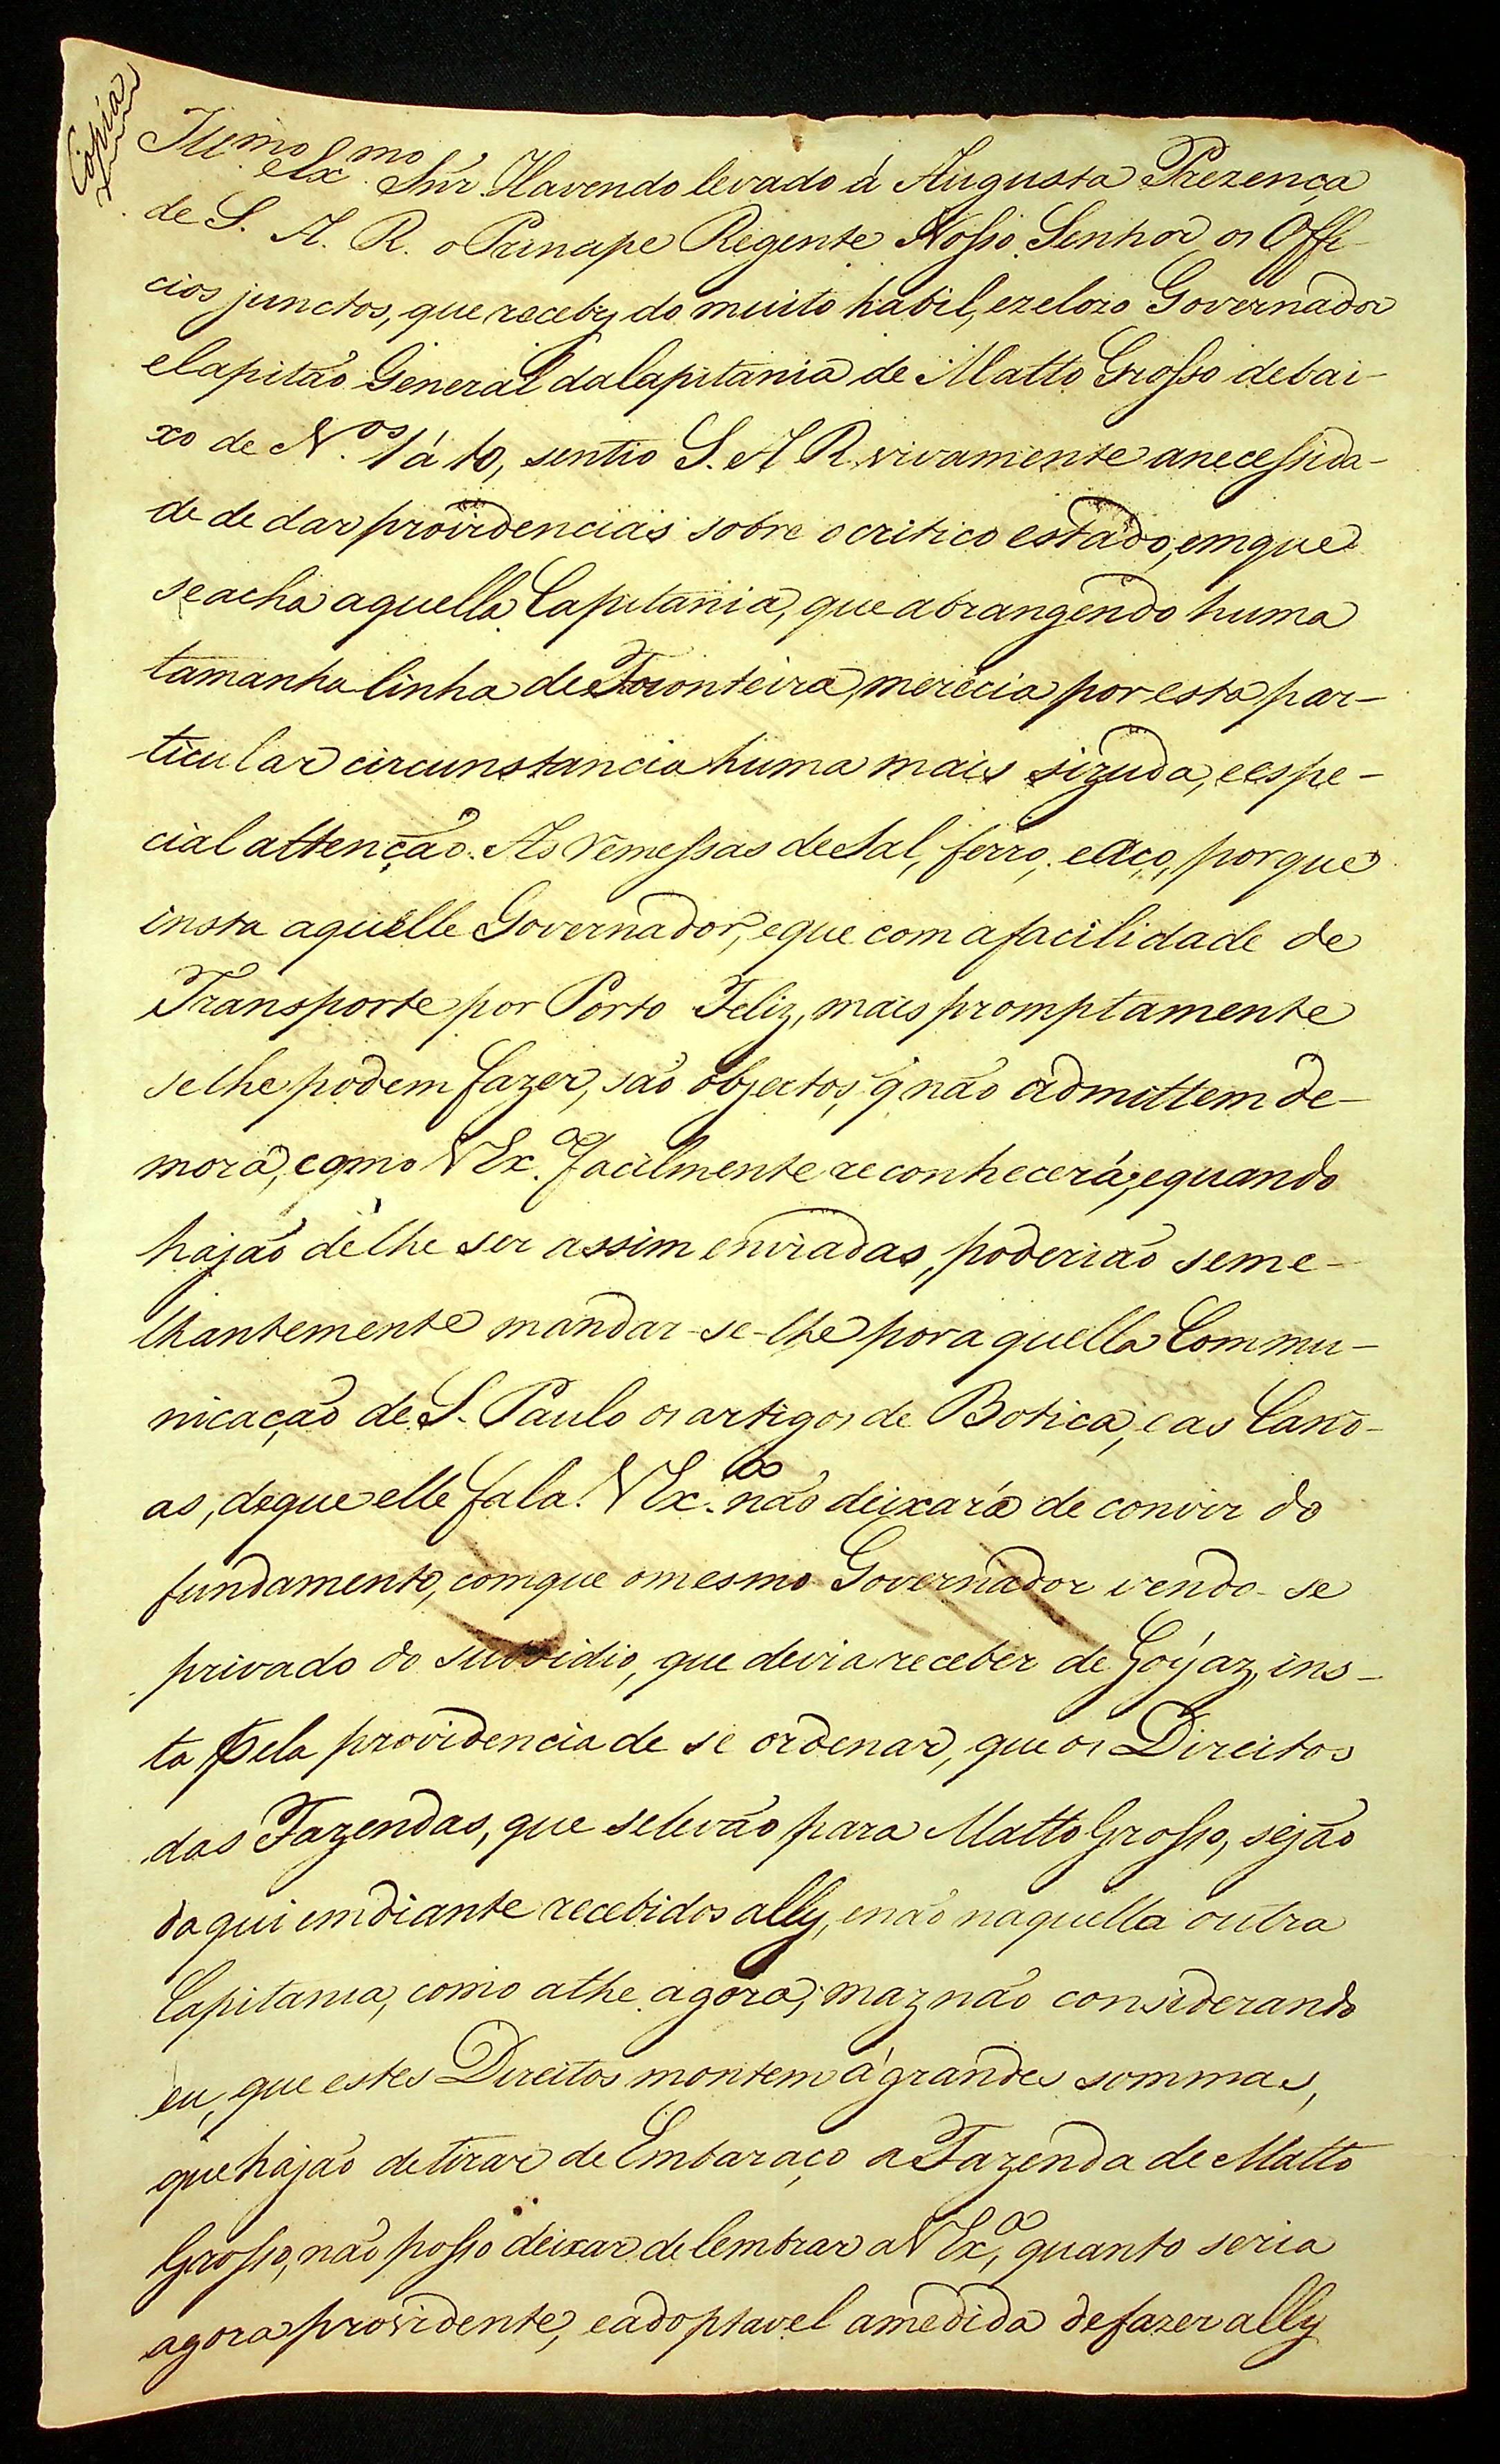 Copia
Illmo. e Exmo. Snr. Havendo levado á Augusta Prezença
de S. A. R. o Principe Regente Nosso Senhor os Offi-
cios junctos, que receby do muito habil, e zelozo Governador
e Capitão General da Capitania de Matto Grosso debai-
xo de N.os 1 á 10, sentio S. A R. vivamente a necessida-
de de dar providencias sobre o critico estado, em que
se acha aquella Capitania, que abrangendo huma
tamanha linha de Fronteira, merecia por esta par-
ticular circunstancia huma mais sizuda, e espe-
cial attenção. As remessas de Sal, ferro, e Aço, porque
insta aquelle Governador, e que com a facilidade de
Transporte por Porto Feliz, mais promptamente
se lhe podem fazer, são objectos, q̃ não admittem de-
mora, como V Ex.a facilmente reconhecerá; e quando
hajão de lhe ser assim enviadas, poderião seme-
lhantemente mandar-se-lhe por aquella Commu-
nicação de S. Paulo os artigos de Botica, e as Cano-
as, de que elle fala. V Ex.a não deixará de convir do
fundamento, com que o mesmo Governador vendo-se
privado do subsidio, que devia receber de Goyaz, ins-
ta pela providencia de se ordenar, que os Direitos
das Fazendas, que se levão para Matto Grosso, sejão
daqui em diante recebidos ally, e não naquella outra
Capitania, como athe agora; maz não considerando
eu, que estes Direitos montem á grandes sommas,
que hajão de tirar de Embaraço a Fazenda de Matto
Grosso, não posso deixar de lembrar a V Ex.a, quanto seria
agora providente, e adoptavel a medida de fazer ally